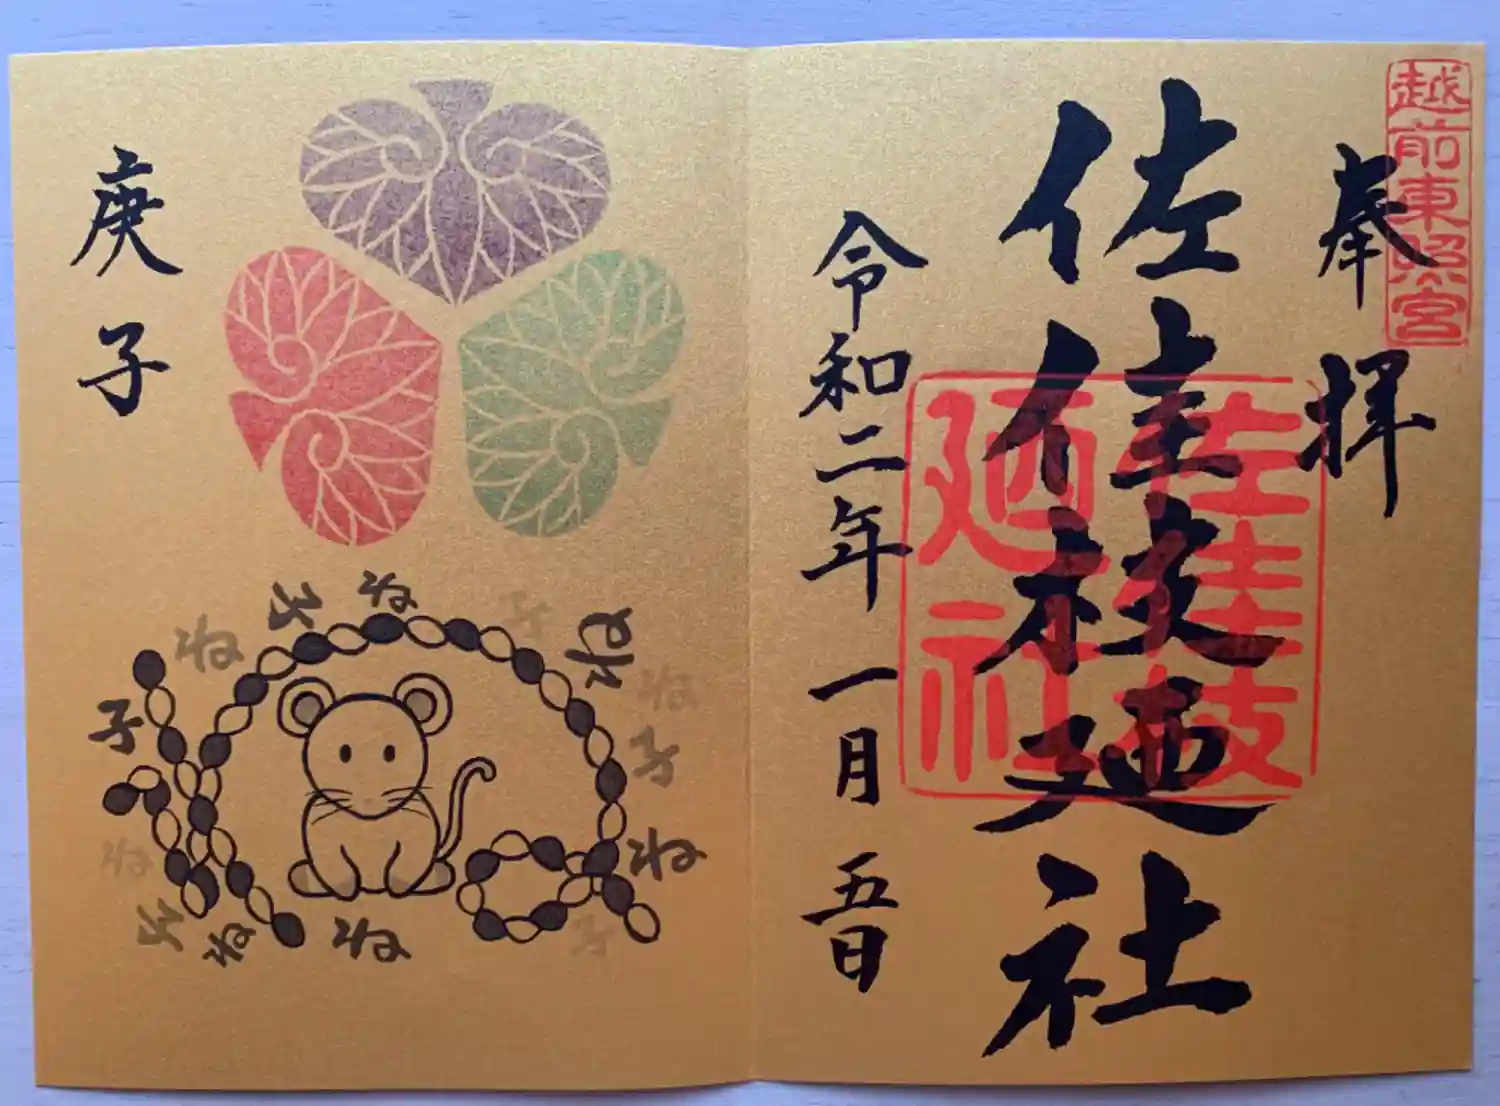 越前東照宮
奉拝
佐佳枝廼社
佐佳枝廼社
令和二年一月五日
庚子
ね
子
ね
子
ね
ね
子
ね
子
ね
ね
子
ね
子